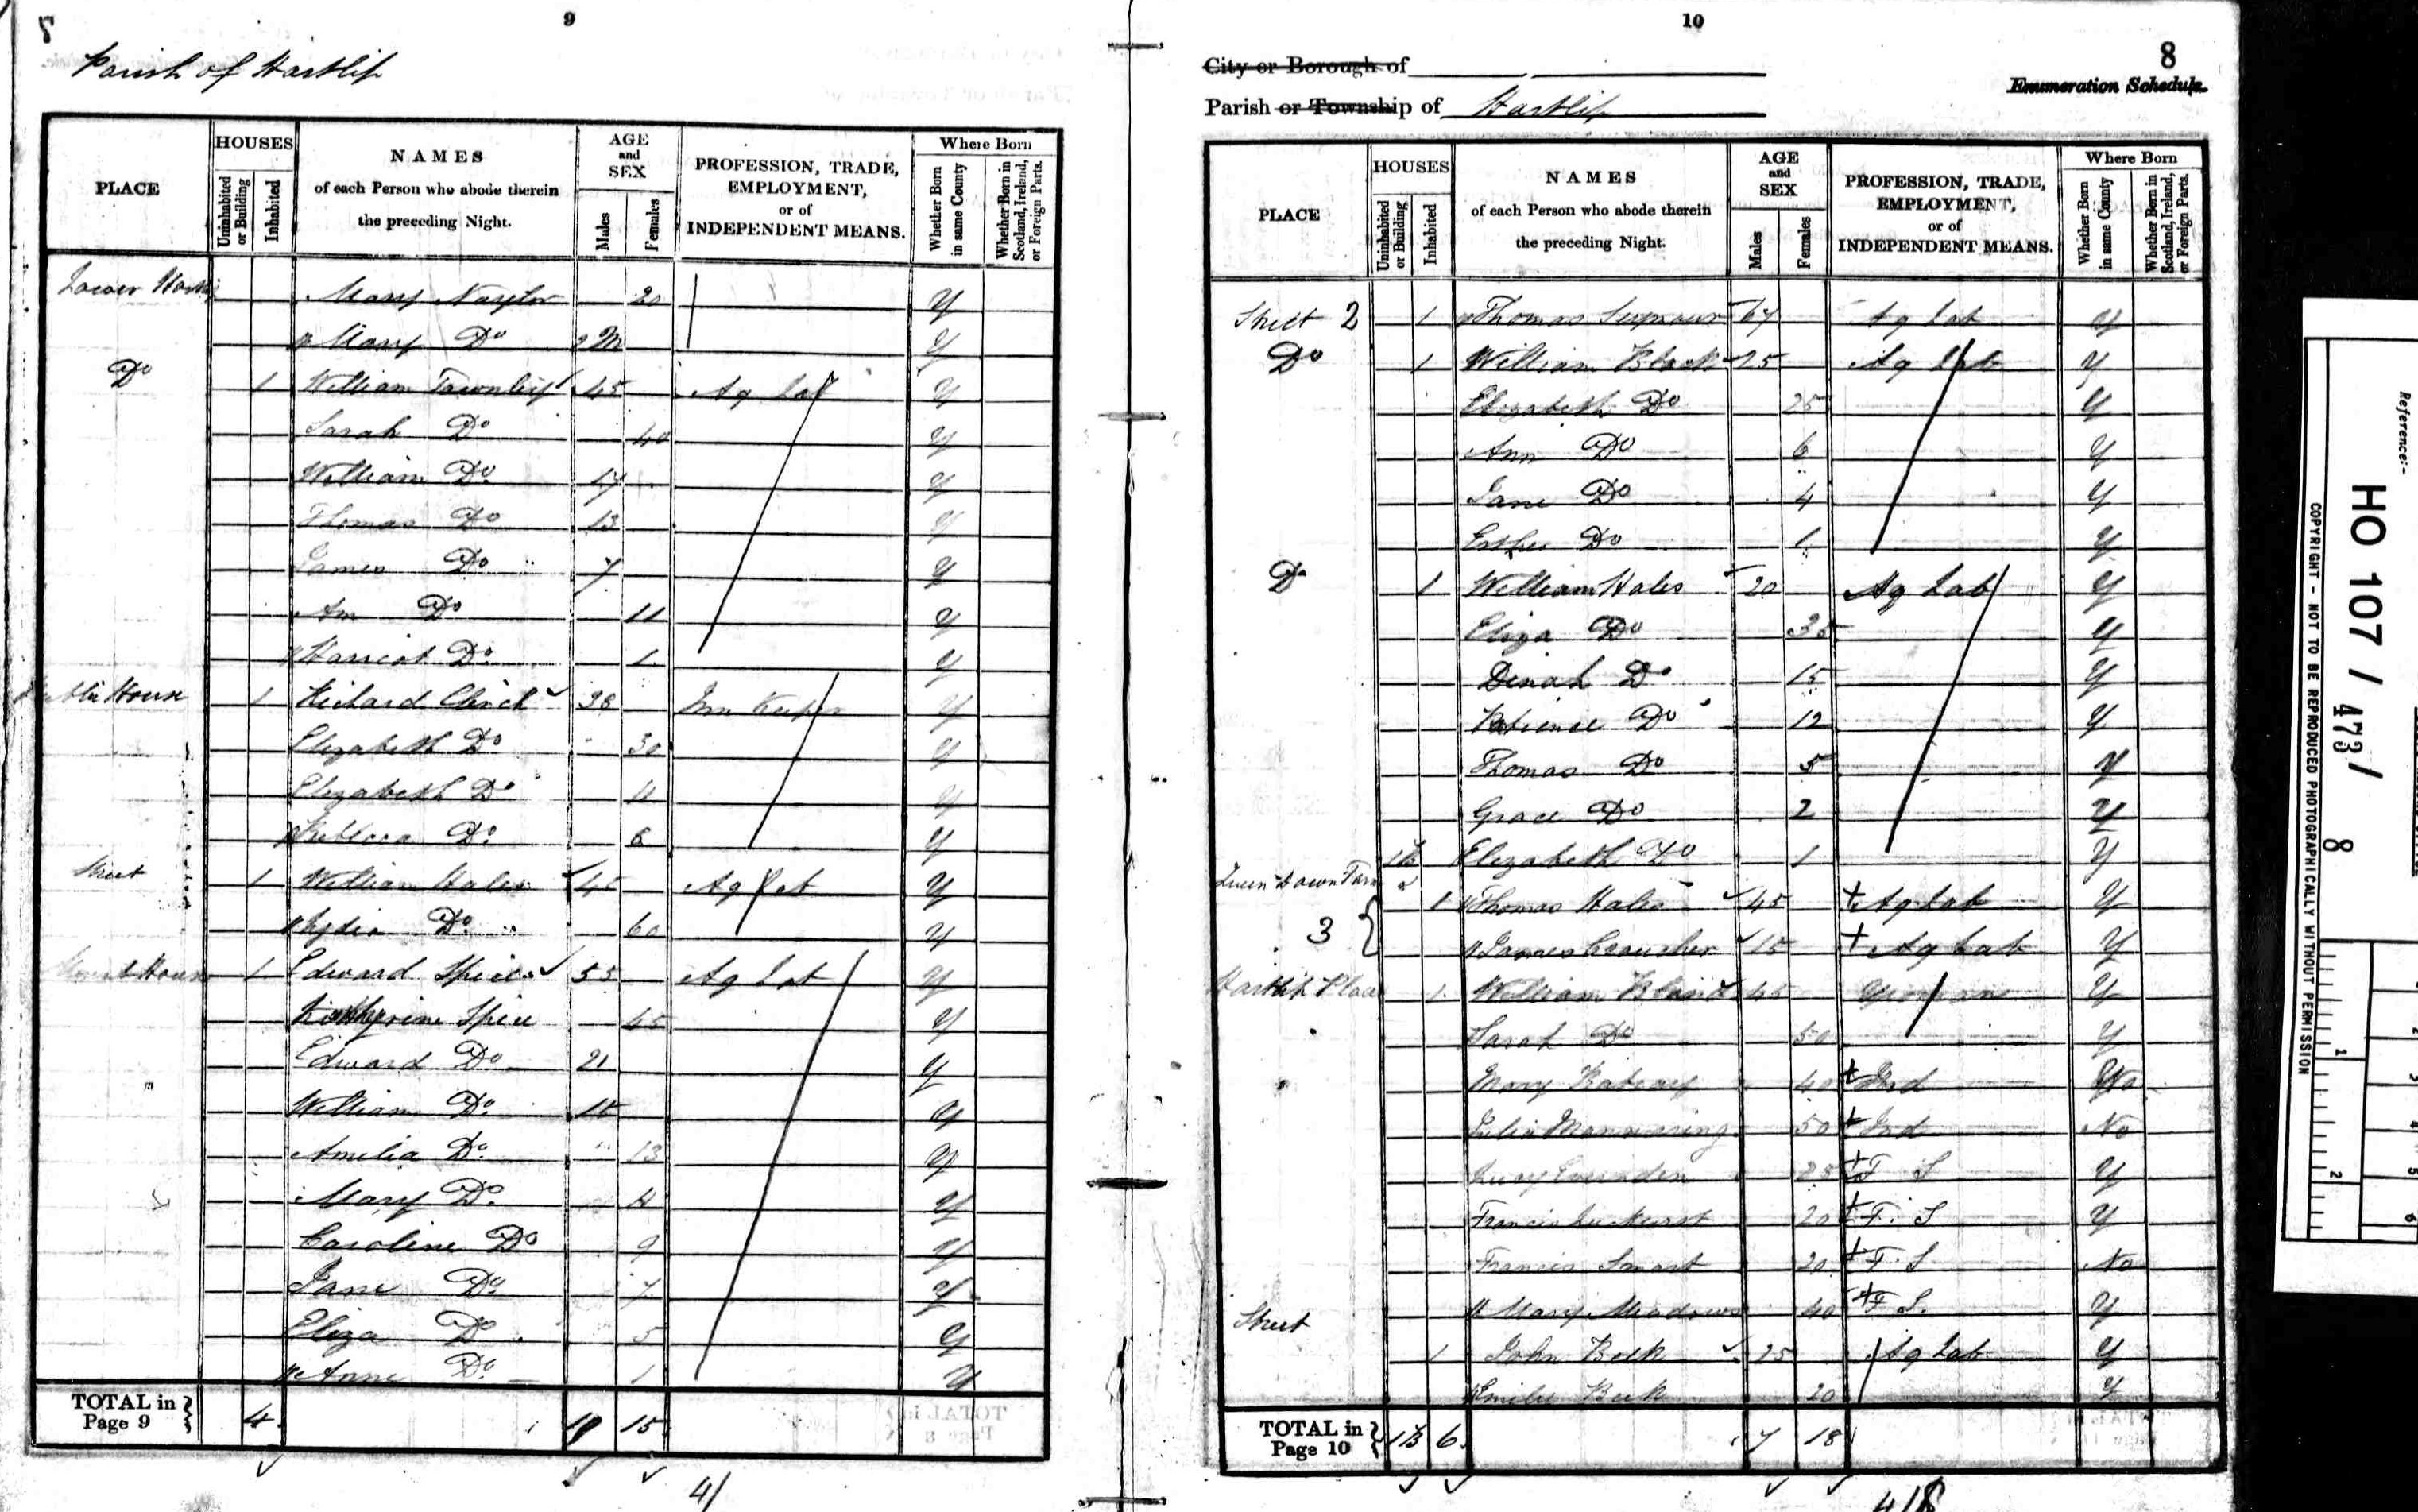 9
Parish of Hartlip
PLACE HOUSES Uninhabited or Building Inhabited NAMES of each Person who abode therein the preceding Night. AGE and SEX Males Females PROFESSION, TRADE, EMPLOYMENT, or of INDEPENDENT MEANS. Where Born Whether Born in same County Whether Born in Scotland, Ireland, or Foreign Parts.
Lower Mary Naylor 20 Y
Mary Do 2 M Y
Do 1 William Townley 45 Ag Lab Y
Sarah Do 40 Y
William Do 17 Y
Thomas Do 13 Y
James Do 7 Y
Ann Do 11 Y
Harriot Do 1 Y
House 1 Richard Clinch Inn Keeper Y
Elizabeth Do 30 Y
Elizabeth Do 11 Y
Do 6 Y
Street 1 William Hales 45 Ag Lab Y
Lydia Do 60 Y
House 1 Edward Spice 55 Ag Lab Y
Spice 45 Y
Edward Do 21 Y
William Do 15 Y
Amelia Do 13 Y
Mary Do Y
Caroline Do 9 Y
Jane Do 7 Y
Eliza Do 5 Y
Anne Do 1 Y
TOTAL in Page 9 4 10 15
41
10
8
City or Borough of
Enumeration Schedule.
Parish or Township of Hartlip
PLACE HOUSES Uninhabited or Building Inhabited NAMES of each Person who abode therein the preceding Night. AGE and SEX Males Females PROFESSION, TRADE, EMPLOYMENT, or of INDEPENDENT MEANS. Where Born Whether Born in same County Whether Born in Scotland, Ireland, or Foreign Parts.
Street 2 1 Thomas Seymour 67 Ag Lab Y
Do 1 William Black 25 Ag Lab Y
Elizabeth Do 25 Y
Ann Do 6 Y
Jane Do 4 Y
Esther Do 1 Y
Do 1 William Hales 20 Ag Lab Y
Eliza Do 35 Y
Dinah Do 15 Y
Patience Do 12 Y
Thomas Do 5 Y
Grace Do 2 Y
1B Elizabeth Do 1 Y
Queen Down Farm 1 Thomas Hales 45 Ag Lab Y
3 James Croucher 15 Ag Lab Y
Hartlip Place 1 William Bland 45 Yeoman Y
Sarah Do 50 Y
Mary 40 Ind No
Julia Mannering 50 Ind No
Lucy 25 F S Y
Francis 20 F. S Y
Francis Smart 20 F. S No
Mary Meadows 40 F S. Y
Street 1 John Beek 25 Ag Lab Y
Emilie Beek 20 Y
TOTAL in Page 10 1B 6 7 18
Reference:-
HO 107 / 473 / 8
COPYRIGHT - NOT TO BE REPRODUCED PHOTOGRAPHICALLY WITHOUT PERMISSION
1
2